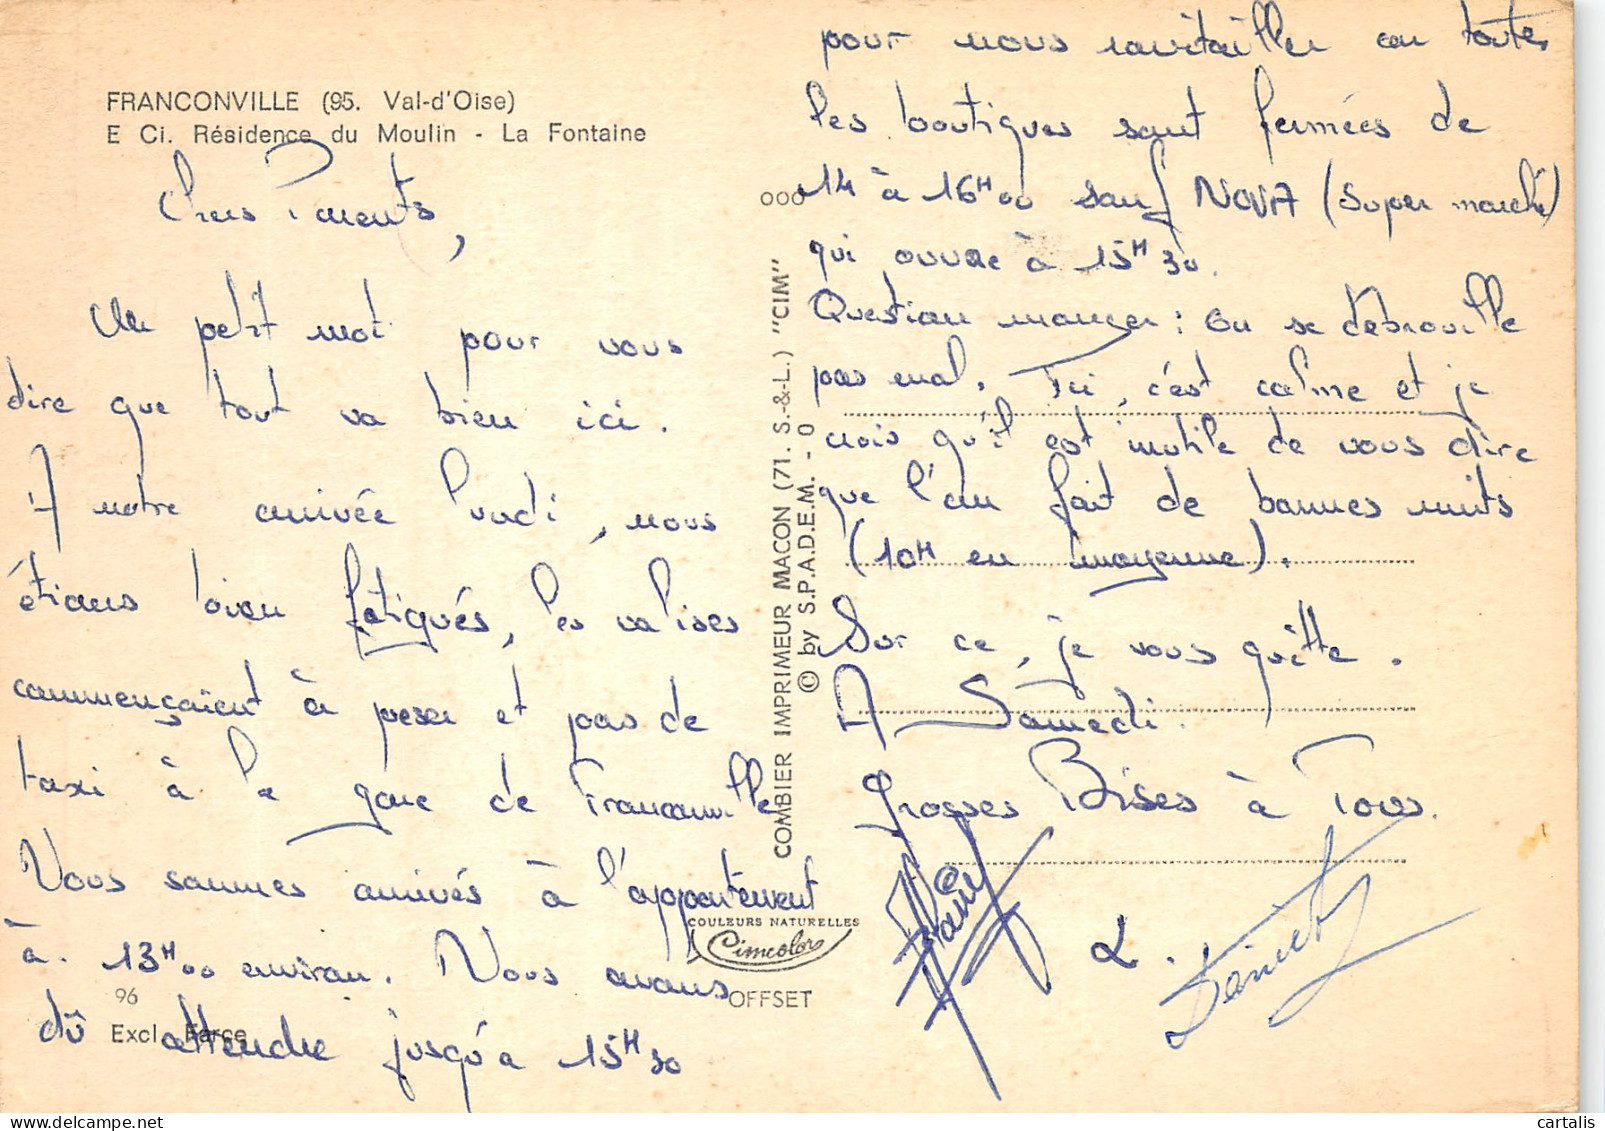 FRANCONVILLE (95. Val-d'Oise)
E Ci. Résidence du Moulin - La Fontaine
Chers Parents,
Un petit mot pour vous
dire que tout va bien ici.
A notre arrivée lundi, nous
étions bien fatigués, les valises
commençaient à peser et pas de
taxi à la gare de Franconville
Nous sommes arrivés à l'appartement
à. 13H00 environ. Nous avons
dû attendre jusqu'à 15H30
96
Excl. Farge
COULEURS NATURELLES
Cimcolor
OFFSET
COMBIER IMPRIMEUR MACON (71. S.-&-L.) "CIM"
© by S.P.A.D.E.M. - 0
pour nous ravitailler car toutes
les boutiques sont fermées de
14 à 16H00 sauf NOVA (Super marché)
qui ouvre à 15H30.
Question manger : On se débrouille
pas mal. Ici, c'est calme et je
crois qu'il est inutile de vous dire
que l'on fait de bonnes nuits
(10H en moyenne).
Sur ce, je vous quitte.
A Samedi.
Grosses Bises à Tous.
cartalis